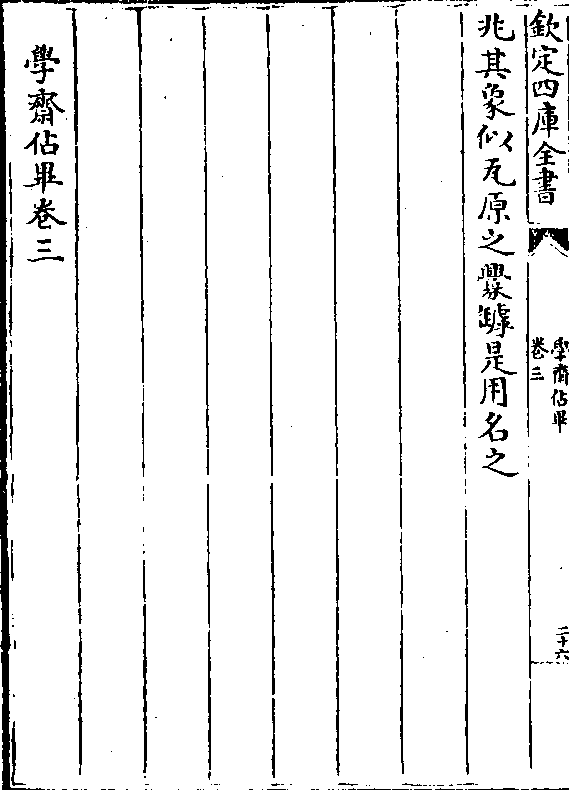 欽定四庫全書
學齋佔畢
卷三
二十六
兆其象似瓦原之舋罅是用名之
學齋佔畢卷三